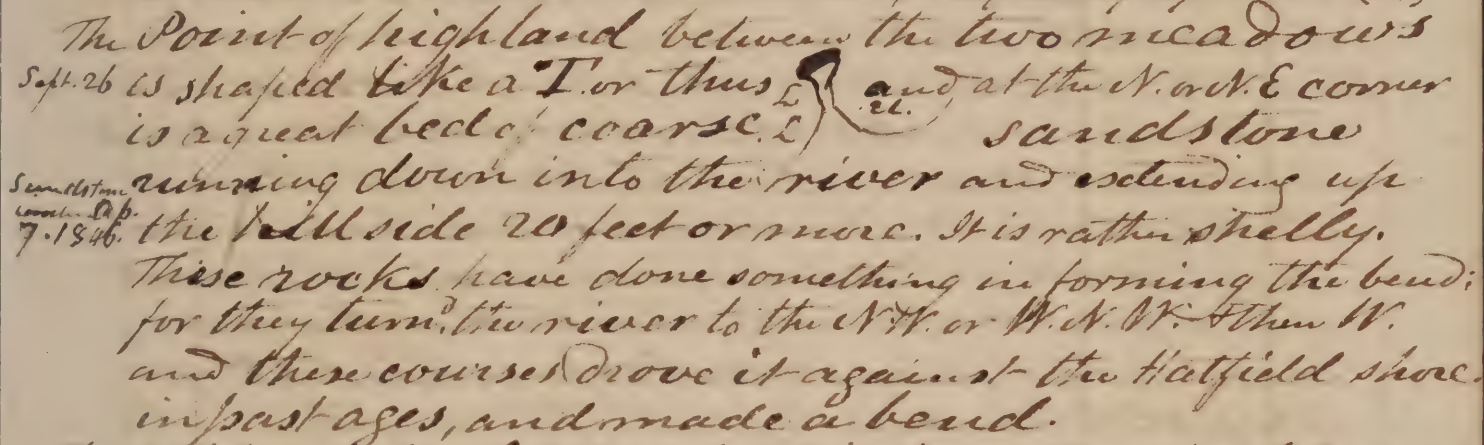 The Point of highland between the two meadows
Sept. 26 is shaped like a T. or thus and at the N. or N. E corner
is a great bed of coarse sandstone
running down into the river and extending up
Sandstone
Sep.
7. 1846. the hill side 20 feet or more. It is rather shelly.
These rocks have done something in forming the bend;
for they turnd. the river to the N W. or W. N. W. & then W.
and these courses drove it against the Hatfield shore
in past ages, and made a bend.